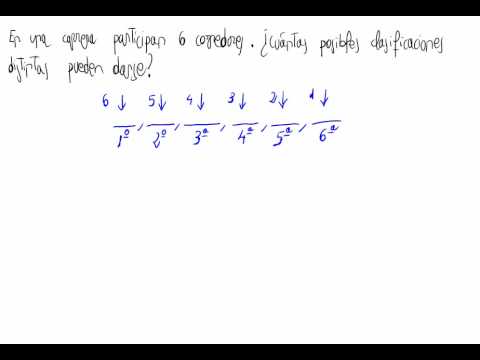 En una carrera participan 6 corredores. ¿Cuántas posibles clasificaciones
distintas pueden darse?
6 ↓ 5 ↓ 4 ↓ 3 ↓ 2 ↓ 1 ↓
1º, 2º, 3ª, 4ª, 5ª, 6ª